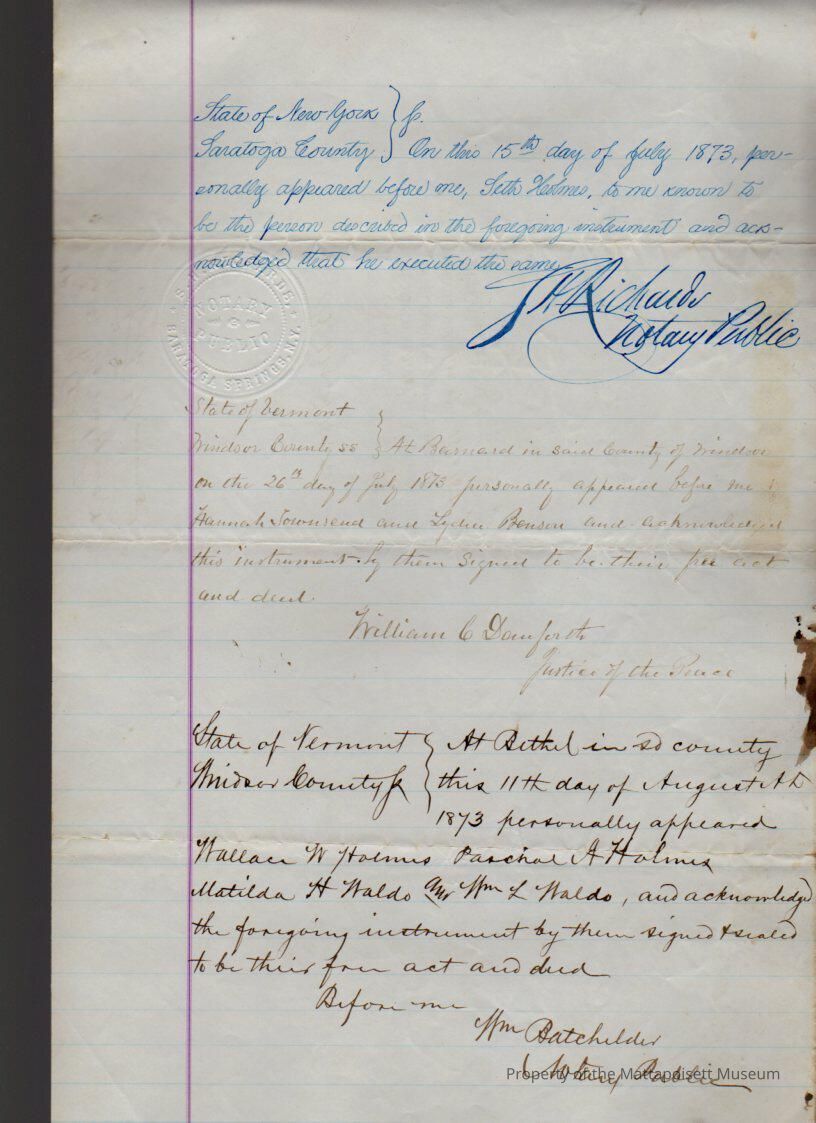 State of New York } ss.
Saratoga County } On this 15th day of July 1873, per-
sonally appeared before me, Seth Holmes, to me known to
be the person described in the foregoing instrument and ack-
nowledged that he executed the same
Richards
Notary Public
NOTARY
PUBLIC
SARATOGA SPRINGS, N.Y.
State of Vermont
Windsor County ss } At Barnard in said County of Windsor
on the 26th day of July 1873 personally appeared before me
Hannah Townsend and Lydia Benson and acknowledged
this instrument by them signed to be their free act
and deed.
William C Danforth
Justice of the Peace
State of Vermont } At Bethel in sd county
Windsor County ss } this 11th day of August AD
1873 personally appeared
Wallace W Holmes Paschal A Holmes
Matilda H Waldo and Wm L Waldo, and acknowledged
the foregoing instrument by them signed & sealed
to be their free act and deed
Before me
Wm Batchelder
Notary Public
Property of the Mattapoisett Museum